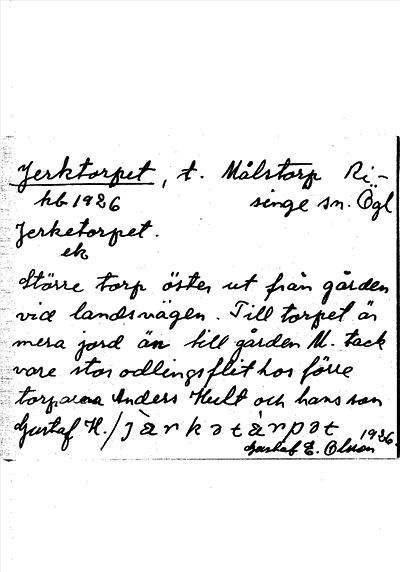 Jerktorpet, t. Målstorp Ri-
kb 1926 singe sn. Ögl
Jerketorpet.
ek
Större torp öster ut från gården
vid landsvägen. Till torpet är
mera jord än till gården M. tack
vare stor odlingsflit hos förre
torparna Anders Hult och hans son
Gustaf H./
1926.
Gustaf E. Olsson